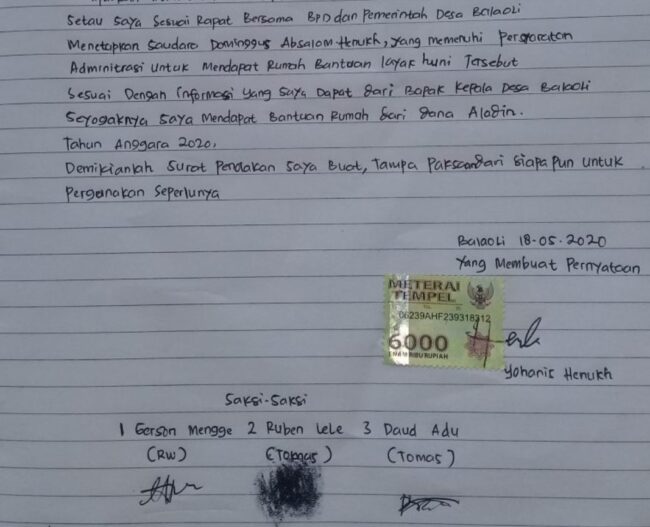 Setau Saya Sesuai Rapat Bersama BPD dan Pemerintah Desa Balaoli
Menetapkan Saudara Dominggus Absalom Henukh, yang memenuhi Persyaratan
Adminitrasi Untuk Mendapat Rumah Bantuan layak huni Tersebut
Sesuai Dengan Informasi yang Saya Dapat dari Bapak Kepala Desa Balaoli
Seyogaknya Saya Mendapat Bantuan Rumah dari dana Aladin.
Tahun Anggara 2020.
Demikianlah Surat Penolakan Saya Buat, Tampa Paksaan dari Siapa Pun untuk
Pergunakan Seperlunya
Balaoli 18-05-2020
Yang Membuat Pernyataan
METERAI
TEMPEL
06239AHF239318312
6000
ENAM RIBU RUPIAH
Yohanis Henukh
Saksi-Saksi
1 Gerson Mengge 2 Ruben Lele 3 Daud Adu
(RW) (Tomas) (Tomas)